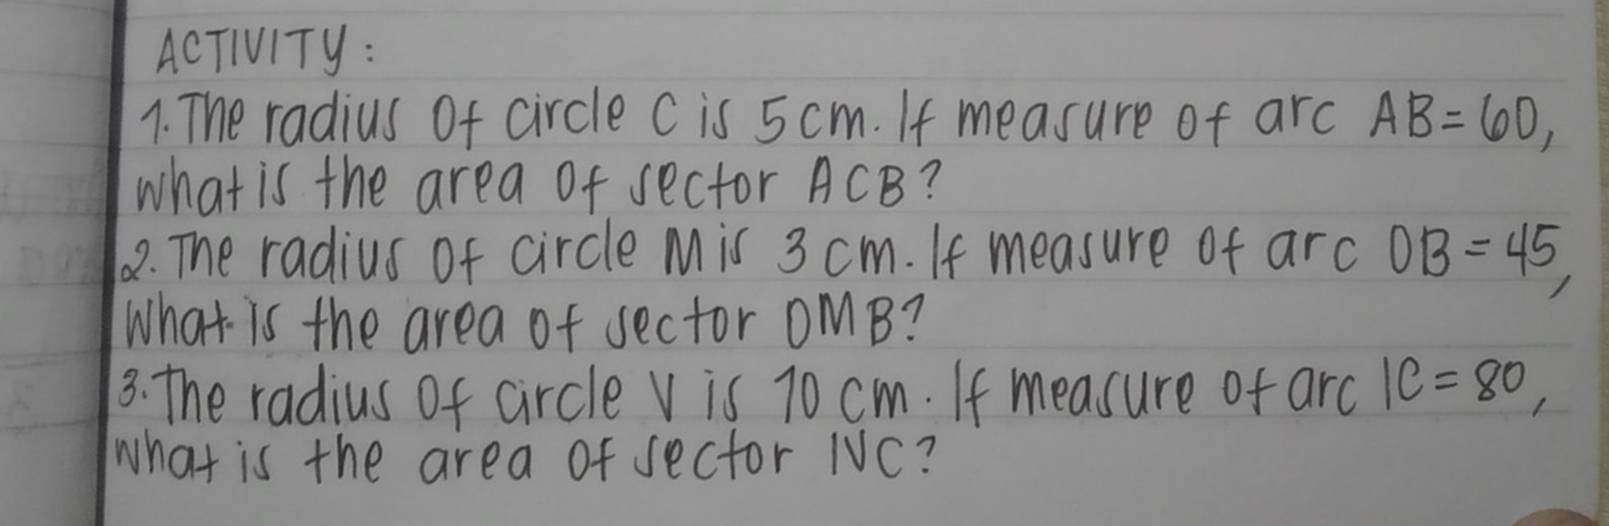 ACTIVITY:
1. The radius of circle C is 5 cm. If measure of arc AB = 60,
what is the area of sector ACB?
2. The radius of circle M is 3 cm. If measure of arc OB = 45,
What is the area of sector OMB?
3. The radius of circle V is 10 cm. If measure of arc IC = 80,
what is the area of sector IVC?